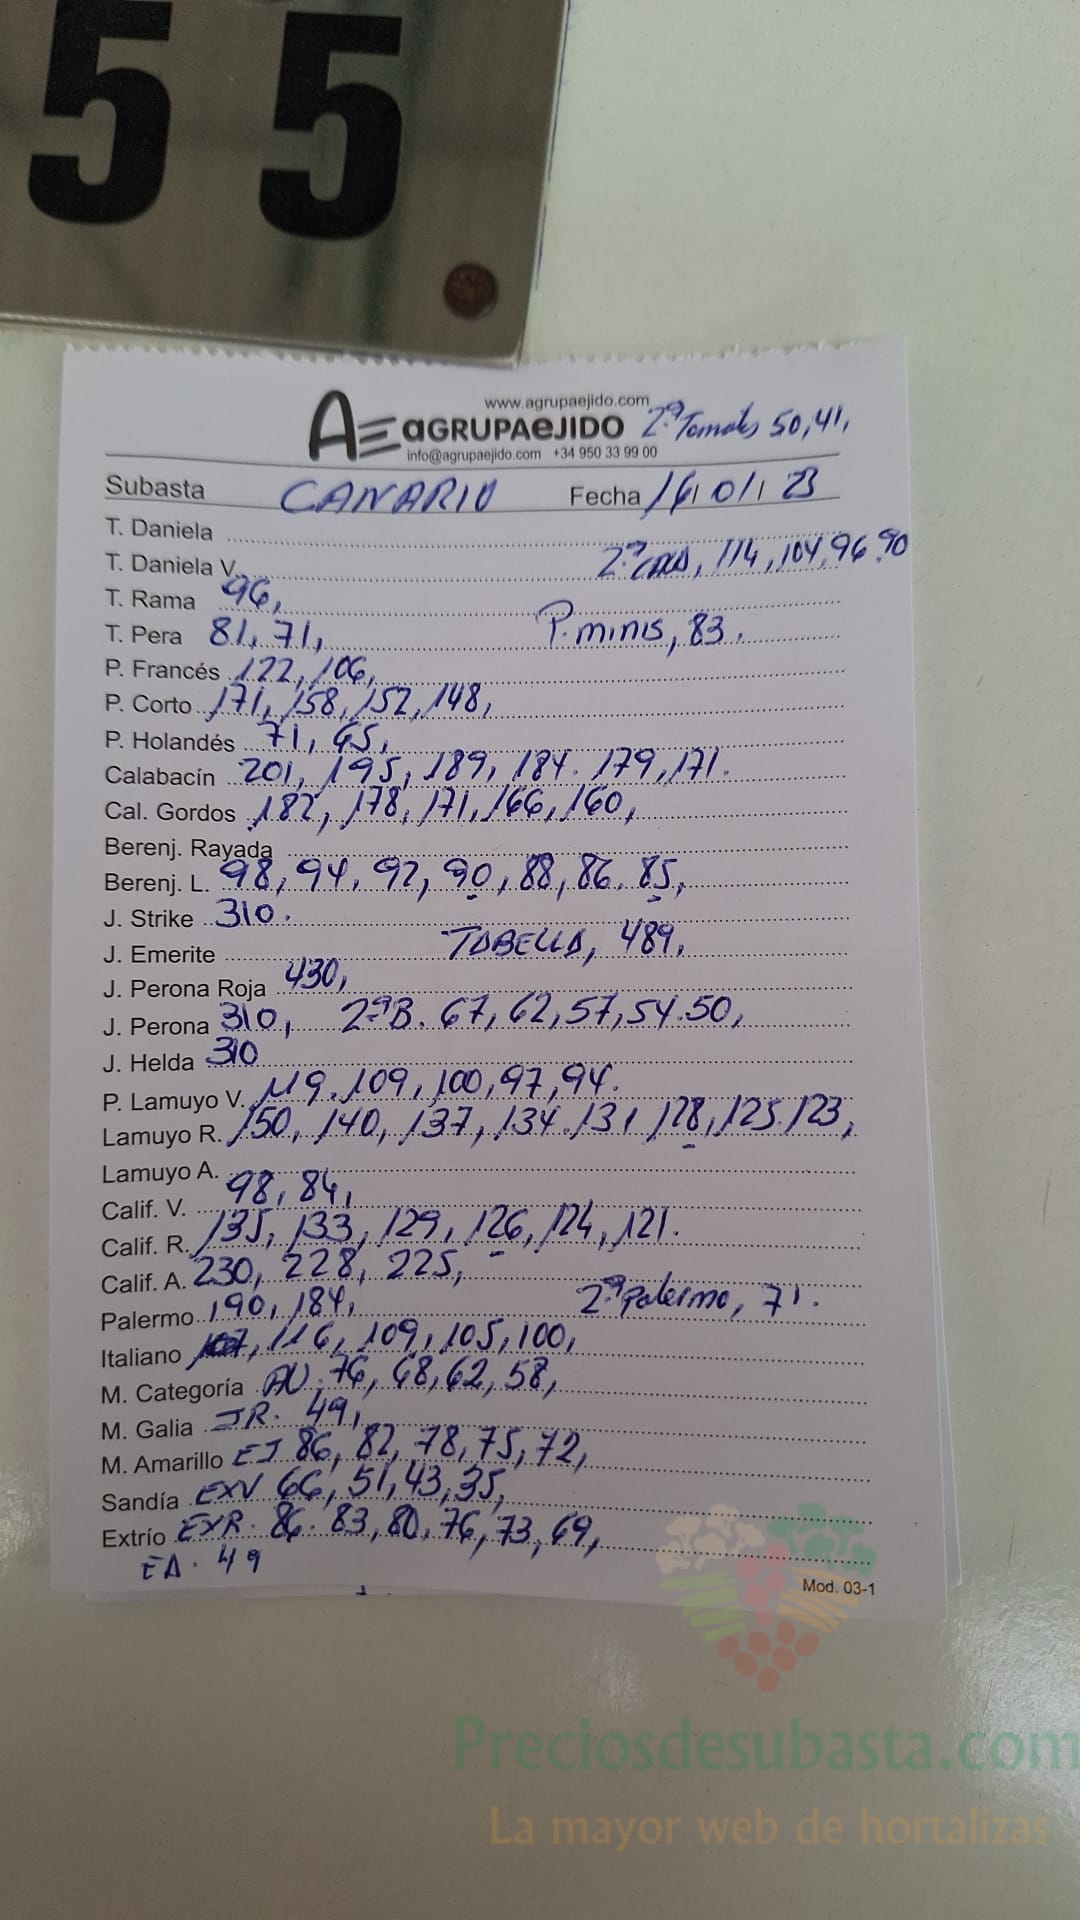 55
www.agrupaejido.com
AE aGRUPAeJIDO 2ª Tomates 50, 41,
info@agrupaejido.com +34 950 33 99 00
Subasta CANARIO Fecha 16/01/23
T. Daniela
T. Daniela V. 2ª CALA, 114, 104, 96, 90
T. Rama 96,
T. Pera 81, 71, P. minis, 83.
P. Francés 122, 106,
P. Corto 171, 158, 152, 148,
P. Holandés 71, 65,
Calabacín 201, 195, 189, 184. 179, 171.
Cal. Gordos 182, 178, 171, 166, 160,
Berenj. Rayada
Berenj. L. 98, 94, 92, 90, 88, 86. 85,
J. Strike 310.
J. Emerite TABELLA, 489,
J. Perona Roja 430,
J. Perona 310, 2ª B. 67, 62, 57, 54. 50,
J. Helda 310
P. Lamuyo V. 119, 109, 100, 97, 94.
Lamuyo R. 150, 140, 137, 134. 131 128, 125. 123,
Lamuyo A.
Calif. V. 98, 84,
Calif. R. 135, 133, 129, 126, 124, 121.
Calif. A. 230, 228, 225,
Palermo 190, 184, 2ª Palermo, 71.
Italiano 116, 109, 105, 100,
M. Categoría AV. 76, 68, 62, 58,
M. Galia JR. 49,
M. Amarillo EJ 86, 82, 78, 75, 72,
Sandía EXV 66, 51, 43, 35,
Extrío EXR. 86. 83, 80, 76, 73, 69,
EA. 49
Mod. 03-1
Preciosdesubasta.com
La mayor web de hortalizas